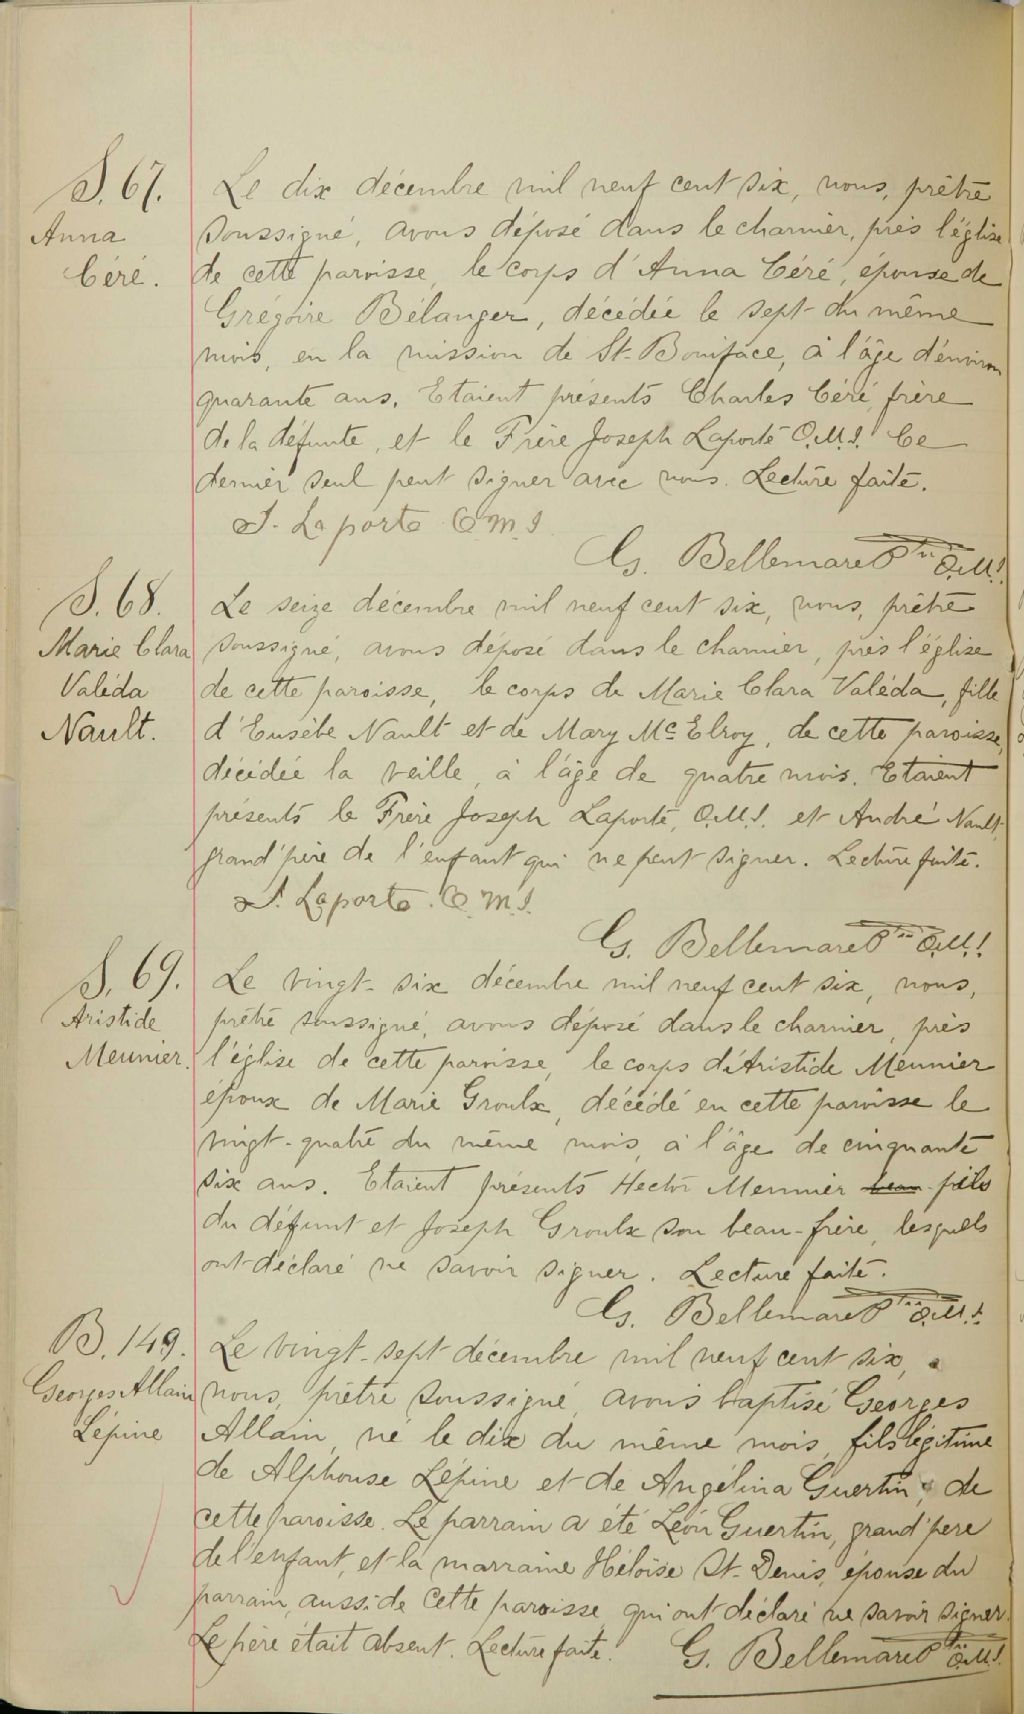 S. 67.
Anna
Céré.
Le dix décembre mil neuf cent six, nous, prêtre
soussigné, avons déposé dans le charnier, près l'église
de cette paroisse, le corps d'Anna Céré, épouse de
Grégoire Bélanger, décédée le sept du même
mois, en la mission de St-Boniface, à l'âge d'environ
quarante ans. Etaient présents Charles Céré, frère
de la défunte, et le Frère Joseph Laporte O.M.I. Ce
dernier seul peut signer avec nous. Lecture faite.
J. Laporte O.M.I.
G. Bellemare Ptre O.M.I.
S. 68.
Marie Clara
Valéda
Nault.
Le seize décembre mil neuf cent six, nous, prêtre
soussigné, avons déposé dans le charnier, près l'église
de cette paroisse, le corps de Marie Clara Valéda, fille
d'Eusèbe Nault et de Mary McElroy, de cette paroisse,
décédée la veille, à l'âge de quatre mois. Etaient
présents le Frère Joseph Laporte, O.M.I. et André Nault,
grand'père de l'enfant qui ne peut signer. Lecture faite.
J. Laporte. O.M.I.
G. Bellemare Ptre O.M.I.
S. 69.
Aristide
Meunier.
Le vingt-six décembre mil neuf cent six, nous,
prêtre soussigné, avons déposé dans le charnier, près
l'église de cette paroisse, le corps d'Aristide Meunier
époux de Marie Groulx, décédé en cette paroisse le
vingt-quatre du même mois, à l'âge de cinquante
six ans. Etaient présents Hector Meunier beau-fils
du défunt et Joseph Groulx son beau-frère, lesquels
ont déclaré ne savoir signer. Lecture faite.
G. Bellemare Ptre O.M.I.
B. 149.
Georges Allain
Lépine
Le vingt-sept décembre mil neuf cent six,
nous, prêtre soussigné, avons baptisé Georges
Allain, né le dix du même mois, fils légitime
de Alphonse Lépine et de Angélina Guertin, de
cette paroisse. Le parrain a été Léon Guertin, grand'père
de l'enfant, et la marraine Héloïse St-Denis, épouse du
parrain, aussi de cette paroisse qui ont déclaré ne savoir signer.
Le père était absent. Lecture faite. G. Bellemare Ptre O.M.I.